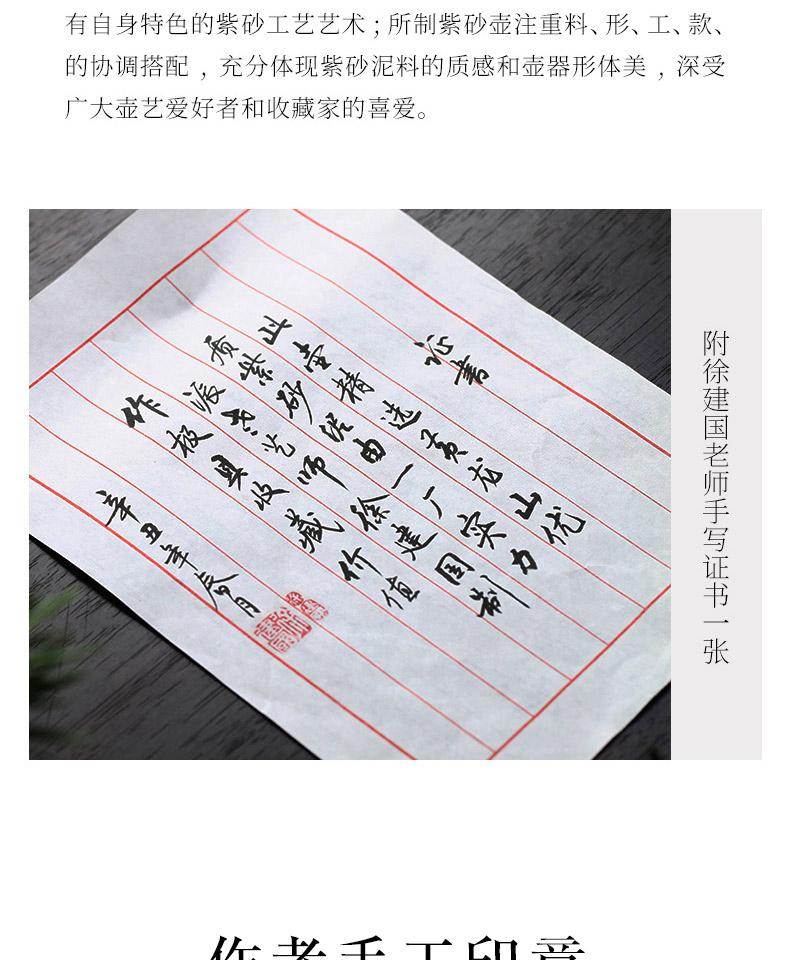 有自身特色的紫砂工艺艺术；所制紫砂壶注重料、形、工、款、
的协调搭配，充分体现紫砂泥料的质感和壶器形体美，深受
广大壶艺爱好者和收藏家的喜爱。
证书
此壶精选黄龙山优
质紫砂经由一厂实力
派老艺师徐建国制
作极具收藏价值
辛丑年辰月
附徐建国老师手写证书一张
作者手工印章